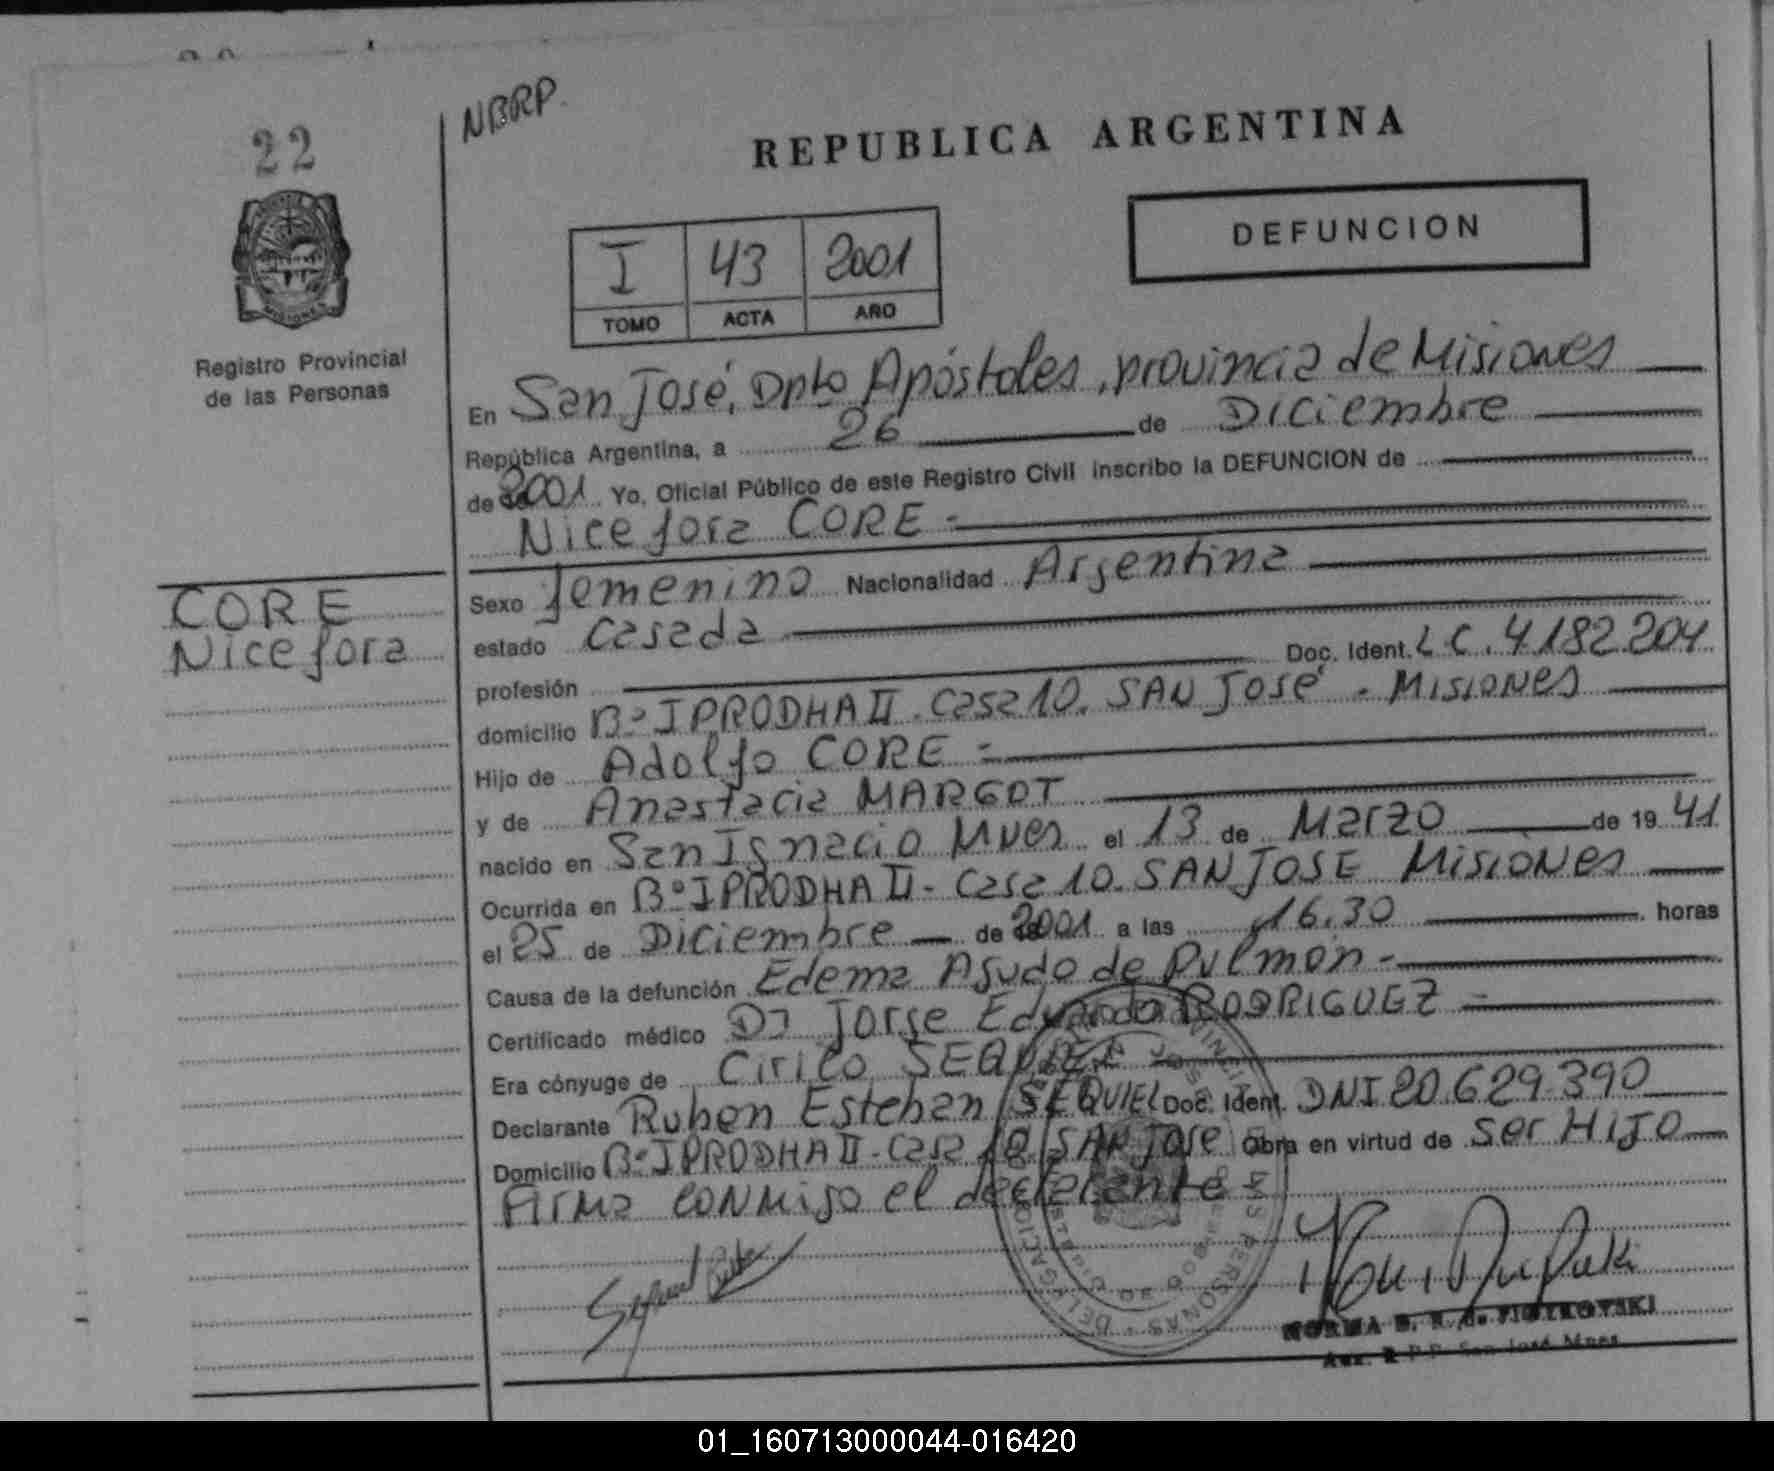 22
NBRP.
REPUBLICA ARGENTINA
DEFUNCION
I 43 2001
TOMO ACTA AÑO
Registro Provincial
de las Personas
En San José, Dpto Apóstoles, provincia de Misiones
República Argentina, a 26 de Diciembre
de 2001 Yo, Oficial Público de este Registro Civil inscribo la DEFUNCION de
Nicefora CORE -
CORE
Nicefora
Sexo femenino Nacionalidad Argentina
estado casada
profesión Doc. Ident. L C. 4.182.204
domicilio B° IPRODHA II - Casa 10. SAN José - Misiones
Hijo de Adolfo CORE -
y de Anastacia MARGOT
nacido en San Ignacio Mnes el 13 de Marzo de 19 41
Ocurrida en B° IPRODHA II - Casa 10. SAN JOSE Misiones
el 25 de Diciembre de 2001 a las 16.30 horas
Causa de la defunción Edema Agudo de Pulmón -
Certificado médico Dr Jorge Eduardo RODRIGUEZ -
Era cónyuge de Cirilo
Declarante Ruben Esteban SEQUIEL Doc. Ident. DNI 20.629.390
Domicilio B° IPRODHA II - Casa 10 SAN JOSE Obra en virtud de ser HIJO
Firma conmigo el declarante
NORMA B. de PIOTROVSKI
San José Mnes
01_160713000044-016420